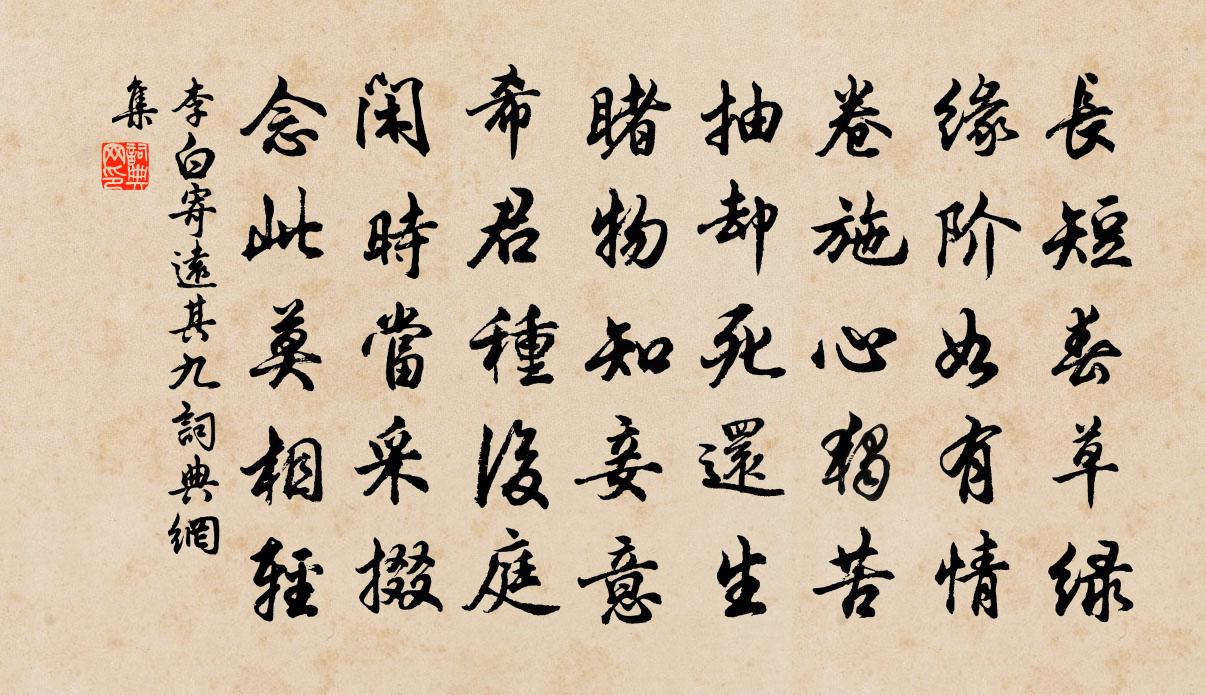 長短春草緑
緣阶如有情
卷施心獨苦
抽却死還生
睹物知妾意
希君種後庭
閑時當采掇
念此莫相輕
李白寄遠其九詞典網
集
詞典網印